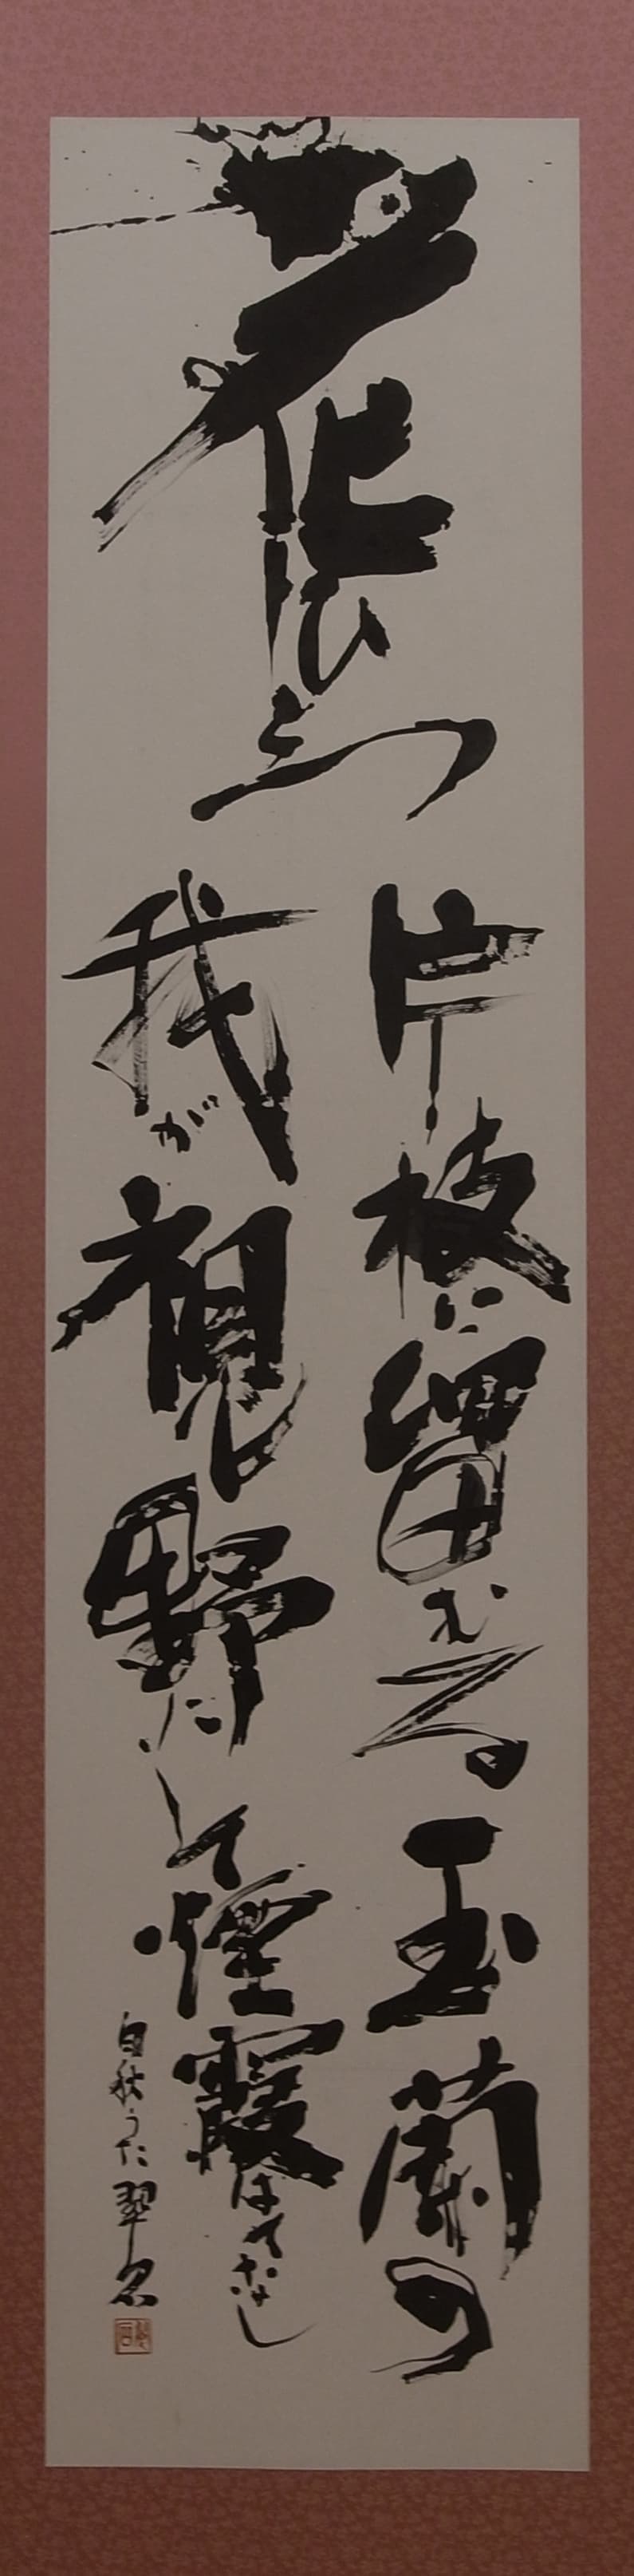 花ひとつ
片枝に留むる玉蘭の
我が視る野にして煙霞はてなし
白秋うた 翠